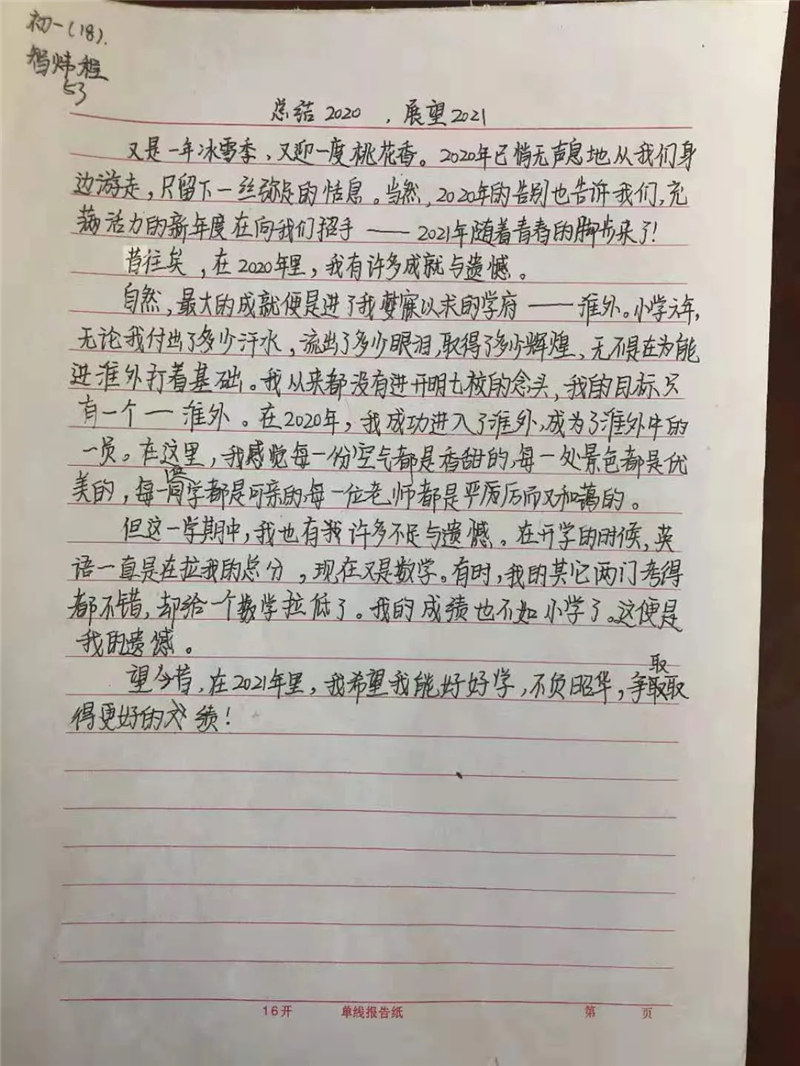 初一(18).
炜程
53
总结2020 ，展望2021
又是一年冰雪季，又迎一度桃花香。2020年已悄无声息地从我们身
边游走，只留下一丝弥足的恬息。当然，2020年的告别也告诉我们，充
满活力的新年度在向我们招手——2021年随着青春的脚步来了！
昔往矣，在2020年里，我有许多成就与遗憾。
自然，最大的成就便是进了我梦寐以求的学府——淮外。小学六年，
无论我付出了多少汗水，流出了多少眼泪，取得了多少辉煌，无不是在为能
进淮外打着基础。我从来都没有进开明七校的念头，我的目标只
有一个—淮外。在2020年，我成功进入了淮外，成为了淮外中的
一员。在这里，我感觉每一份空气都是香甜的，每一处景色都是优
美的，每一位同学都是可亲的，每一位老师都是平厉后而又和蔼的。
但这一学期中，我也有我许多不足与遗憾。在开学的时候，英
语一直是在拉我的总分，现在又是数学。有时，我的其它两门考得
都不错，却给一个数学拉低了。我的成绩也不如小学了。这便是
我的遗憾。
望今昔，在2021年里，我希望我能好好学，不负昭华，争取取
得更好的成绩！
16开 单线报告纸 第 页